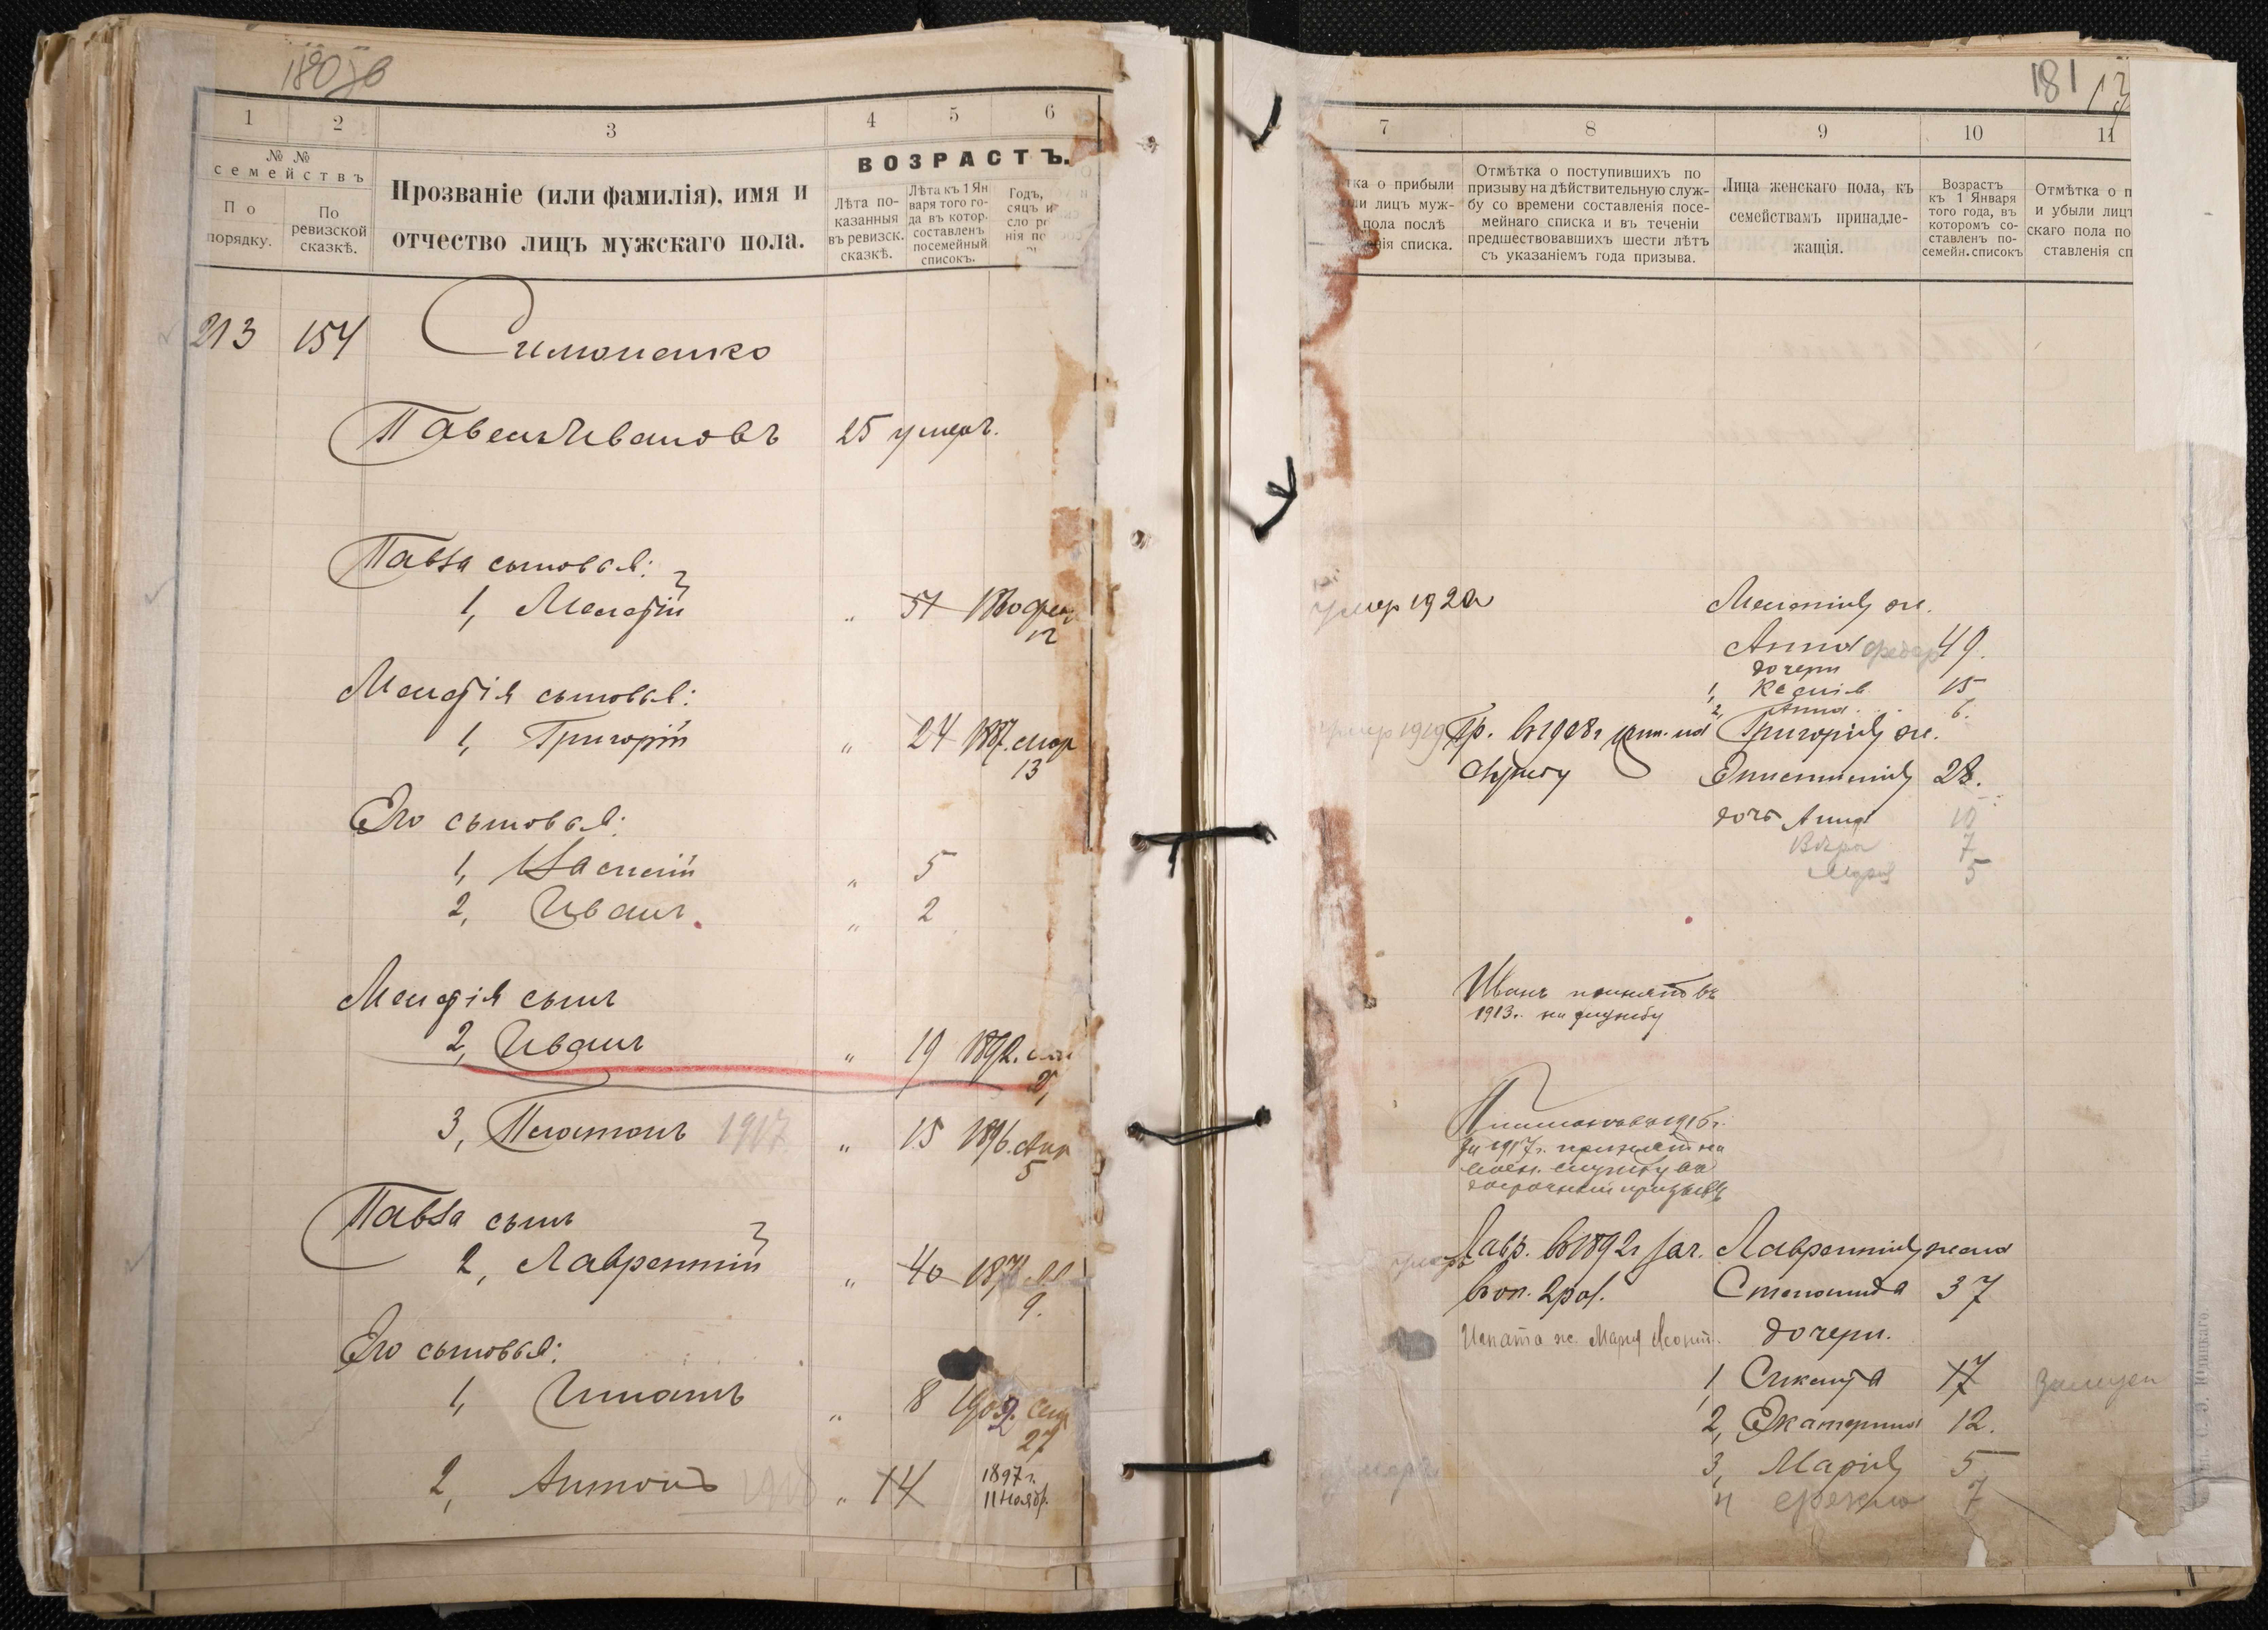 180 об
1 2 3 4 5 6
№ №
семействъ
По
порядку.
По
ревизской
сказкѣ.
Прозваніе (или фамилія), имя и
отчество лицъ мужскаго пола.
ВОЗРАСТЪ.
Лѣта по-
казанныя
въ ревизск.
сказкѣ.
Лѣта къ 1 Ян
варя того го-
да въ котор.
составленъ
посемейный
списокъ.
Годъ,
сяцъ и
сло ро
нія по
213 154 Симоненко
Павелъ Ивановъ 25 умеръ.
Павла сыновья:
1, Мелетій " 51 1860 фев
12
Мелетія сыновья:
1, Григорій " 24 1887. мар
13
Его сыновья:
1, Василій " 5
2, Иванъ " 2
Мелетія сынъ
2, Иванъ " 19 1892.
3, Платонъ 1917 " 15 1896. Апр
5
Павла сынъ
2, Лаврентій " 40 1871
9.
Его сыновья:
1, Игнатъ " 8 1902. Сен
27
2, Антонъ " 14 1897 г.
11 Ноябр.
181 13
7 8 9 10 11
тка о прибыли
ли лицъ муж-
пола послѣ
нія списка.
Отмѣтка о поступившихъ по
призыву на дѣйствительную служ-
бу со времени составленія посе-
мейнаго списка и въ теченіи
предшествовавшихъ шести лѣтъ
съ указаніемъ года призыва.
Лица женскаго пола, къ
семействамъ принадле-
жащія.
Возрастъ
къ 1 Января
того года, въ
которомъ со-
ставленъ по-
семейн. списокъ
Отмѣтка о п
и убыли лицъ
скаго пола по
ставленія сп
умер 1920 Мелетія ж.
Анна Федор 49.
дочери
1, Ксенія 15
2, Анна 6.
умер 1919 Гр. въ 1908 г прин. на Григорія ж.
службу Епистимія 28.
дочь Анна 10
Вѣра 7
Марія 5
Иванъ принятъ въ
1913 г. на службу
Платонъ въ 1916 г.
за 1917 г. принятъ на
воен. службу въ
досрочный призывъ
умеръ Лавр. въ 1892 г зач. Лаврентія жена
въ оп. 2 раз. Степанида 37
Игната ж. Марія Леонт. дочери.
1, Сиклита 17 Замужем
2, Екатерина 12.
умеръ 3, Марія 5
4 Фекла 7